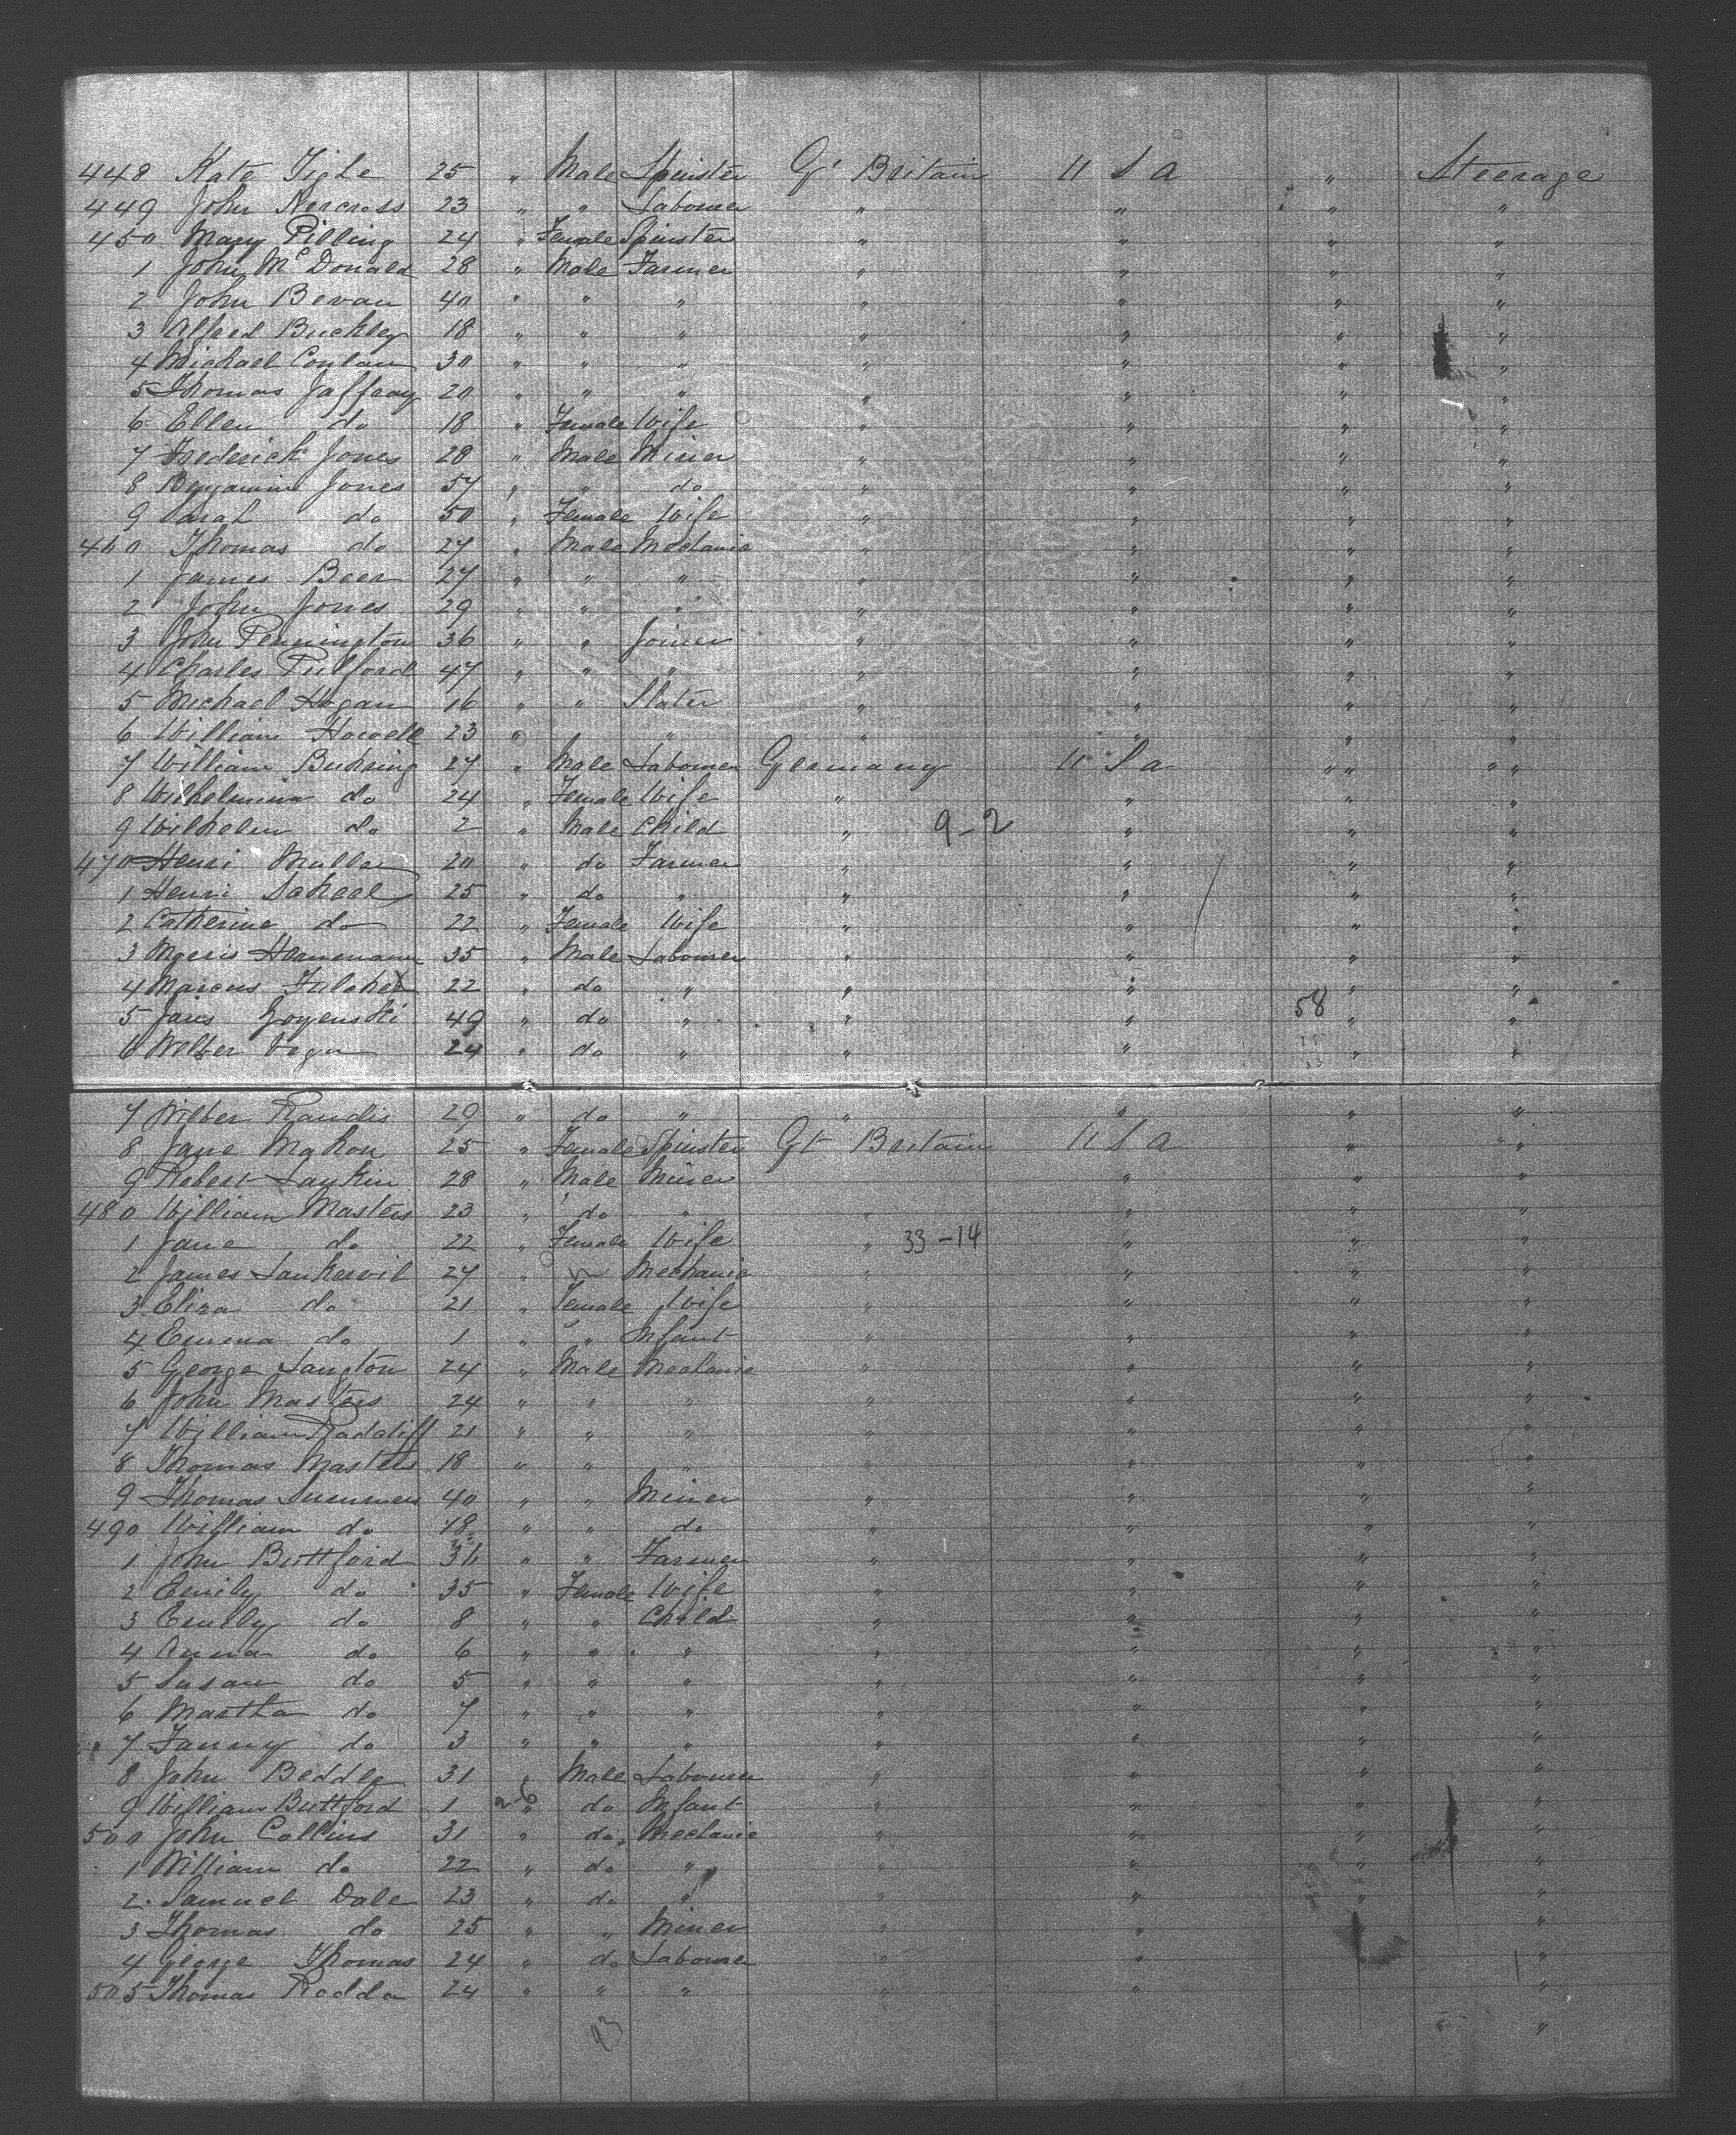 448 Kate Tighe 25 " Male Spinster Gt Britain U S A " Steerage
449 John Norcross 23 " " Labourer " " " "
450 Mary Pilling 24 " Female Spinster " " " "
1 John McDonald 28 " Male Farmer " " " "
2 John Bevan 40 " " " " " " "
3 Alfred Buckley 18 " " " " " " "
4 Michael Conlan 30 " " " " " " "
5 Thomas Jaffray 20 " " " " " " "
6 Ellen do 18 " Female Wife " " " "
7 Frederick Jones 28 " Male Miner " " " "
8 Benjamin Jones 57 " " do " " " "
9 Sarah do 50 " Female Wife " " " "
460 Thomas do 27 " Male Mechanic " " " "
1 James Beer 27 " " " " " " "
2 John Jones 29 " " " " " " "
3 John Pennington 36 " " Joiner " " " "
4 Charles Pulford 47 " " " " " " "
5 Michael Hogan 16 " " Slater " " " "
6 William Howell 23 " " " " " "
7 William Buhring 27 " Male Labourer Germany U S A " " " "
8 Wilhelmina do 24 " Female Wife " " " "
9 Wilhelm do 2 " Male Child " 9-2 " " "
470 Henri Muller 20 " do Farmer " " " "
1 Henri 25 " do " " " " "
2 Catherine do 22 " Female Wife " " " "
3 Hannemann 35 " Male Labourer " " " "
4 Marcus 22 " do " " " " "
5 49 " do " " " 58 " "
6 24 " do " " " " "
7 29 " do " " " " "
8 Jane Mahon 25 " Female Spinster Gt Britain U S A " " "
9 Robert 28 " Male Miner " " "
480 William Masters 23 " do " " " " "
1 Jane do 22 " Female Wife " 33-14 " " "
2 James 27 " Mechanic " " " "
3 Eliza do 21 " Female Wife " " " "
4 Emma do 1 " " Infant " " " "
5 George Langton 24 " Male Mechanic " " " "
6 John Masters 24 " " " " " " "
7 William Radcliff 21 " " " " " " "
8 Thomas Masters 18 " " " " " " "
9 Thomas Summers 40 " " Miner " " " "
490 William do 18 " " do " " " "
1 John Buttford 36 " " Farmer " " " "
2 Emily do 35 " Female Wife " " " "
3 Emily do 8 " " Child " " " "
4 Anna do 6 " " " " " " "
5 Susan do 5 " " " " " " "
6 Martha do 7 " " " " " " "
7 Fanny do 3 " " " " " " "
8 John Beddle 31 " Male Labourer " " " "
9 William Buttford 1 2-6 " do Infant " " " "
500 John Collins 31 " do Mechanic " " " "
1 William do 22 " do " " " " "
2 Samuel Dale 23 " do " " " " "
3 Thomas do 25 " " Miner " " " "
4 George Thomas 24 " do Labourer " " " "
505 Thomas Rodda 24 " " " " " " "
93 "